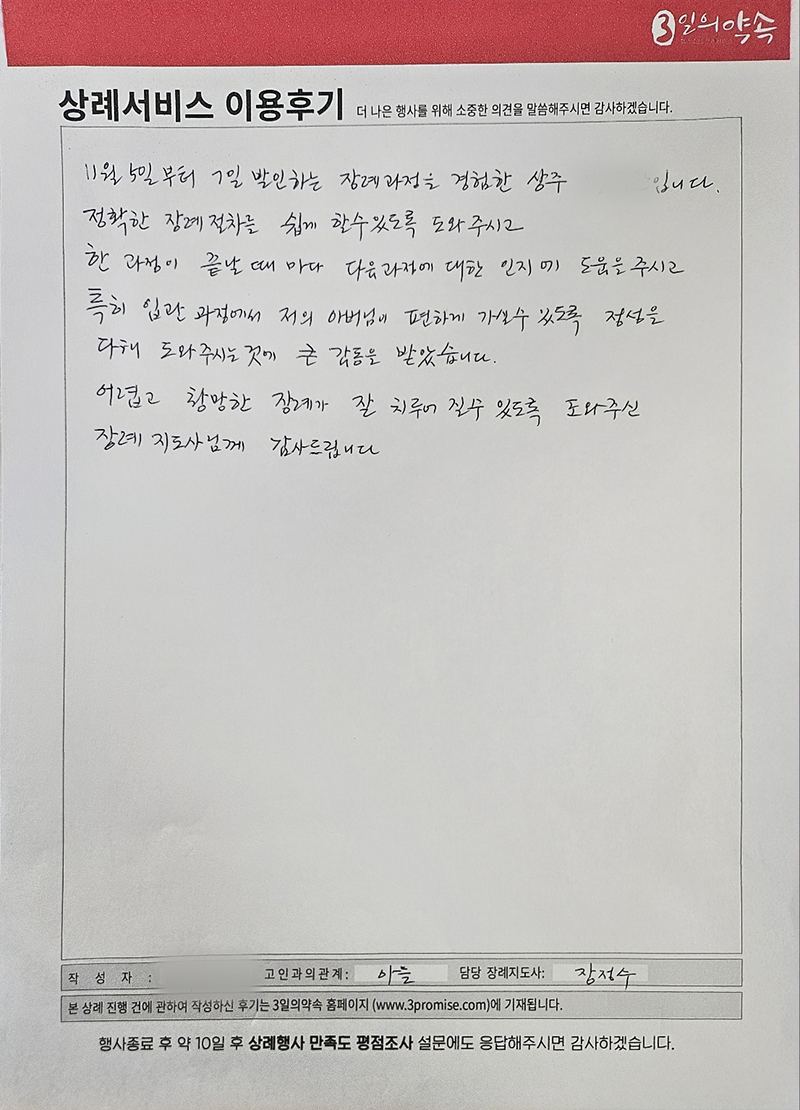 3일의약속
상례서비스 이용후기 더 나은 행사를 위해 소중한 의견을 말씀해주시면 감사하겠습니다.
11월 5일부터 7일 발인하는 장례과정을 경험한 상주 입니다.
정확한 장례절차를 쉽게 할수있도록 도와주시고
한 과정이 끝날때마다 다음과정에 대한 인지에 도움을주시고
특히 입관 과정에서 저의 아버님이 편하게 가실수 있도록 정성을
다해 도와주시는것에 큰 감동을 받았습니다.
어렵고 황망한 장례가 잘 치루어 질수 있도록 도와주신
장례지도사님께 감사드립니다
작 성 자 : 고인과의관계: 아들 담당 장례지도사: 장정수
본 상례 진행 건에 관하여 작성하신 후기는 3일의약속 홈페이지 (www.3promise.com)에 기재됩니다.
행사종료 후 약 10일 후 상례행사 만족도 평점조사 설문에도 응답해주시면 감사하겠습니다.